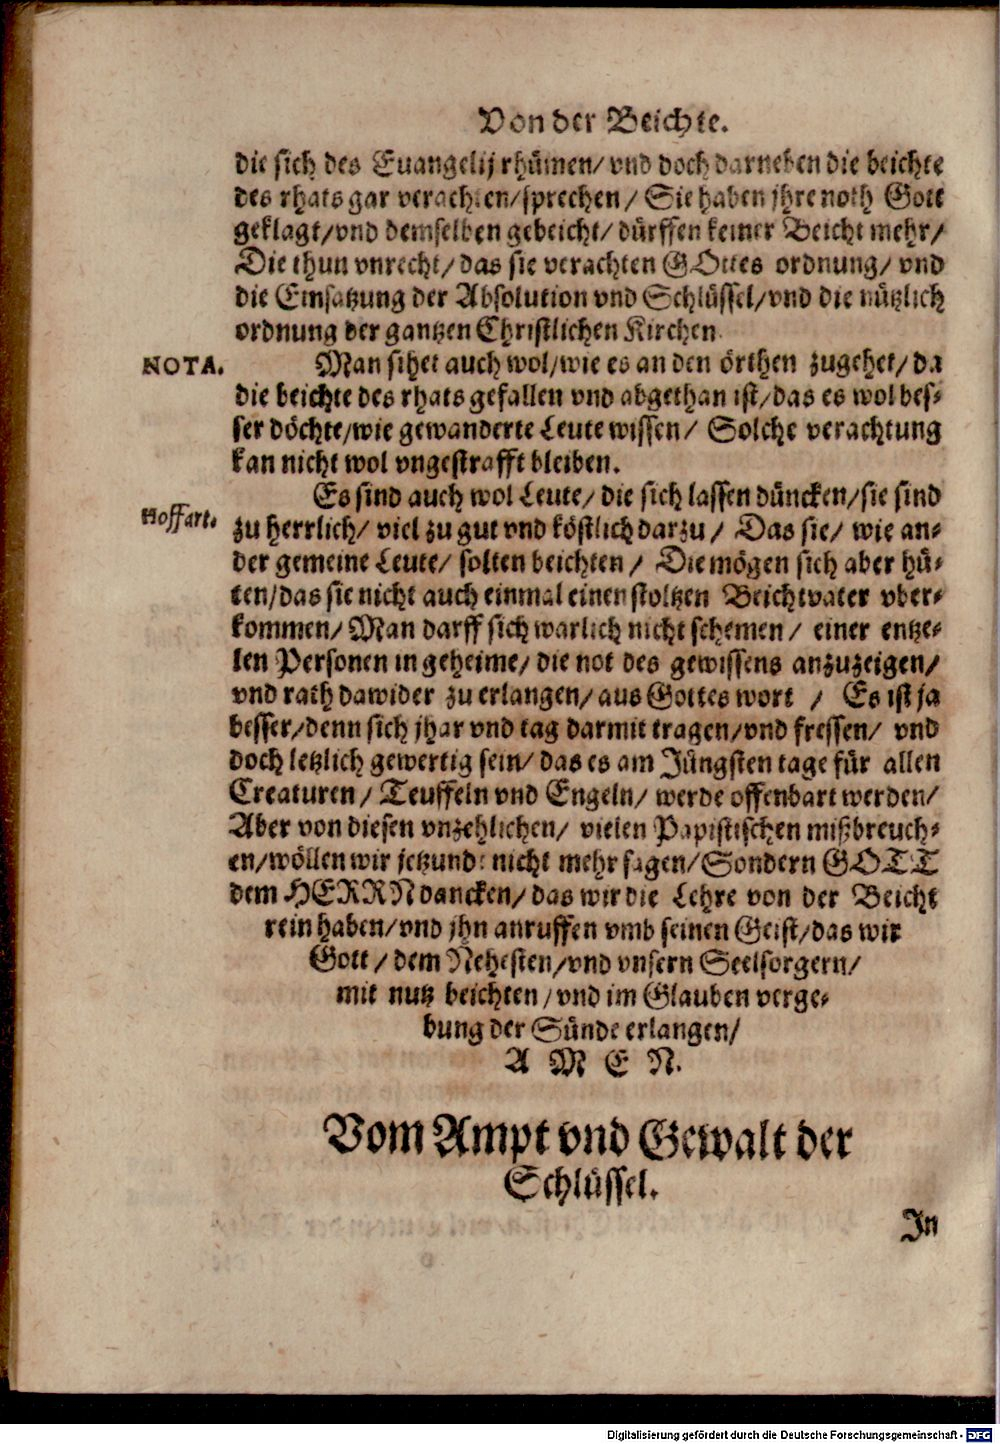 Von der Beichte.
die sich des Euangelij rhümen/ vnd doch darneben die beichte
des rhats gar verachten/sprechen/ Sie haben jhre noth Gott
geklagt/vnd demselben gebeicht/ dürffen keiner Beicht mehr/
Die thun vnrecht/das sie verachten GOttes ordnung/ vnd
die Einsatzung der Absolution vnd Schlüssel/vnd die nützlich
ordnung der gantzen Christlichen Kirchen.
NOTA. Man sihet auch wol/wie es an den örthen zugehet/da
die beichte des rhats gefallen vnd abgethan ist/das es wol bes-
ser döchte/wie gewanderte Leute wissen/ Solche verachtung
kan nicht wol vngestrafft bleiben.
Es sind auch wol Leute/ die sich lassen düncken/sie sind
Hoffart. zu herrlich/ viel zu gut vnd köstlich darzu/ Das sie/ wie an-
der gemeine Leute/ solten beichten/ Die mögen sich aber hü-
ten/das sie nicht auch einmal einen stoltzen Beichtvater vber-
kommen/ Man darff sich warlich nicht schemen/ einer entze-
len Personen in geheime/ die not des gewissens anzuzeigen/
vnd rath dawider zu erlangen/ aus Gottes wort / Es ist ja
besser/denn sich jhar vnd tag darmit tragen/vnd fressen/ vnd
doch letzlich gewertig sein/ das es am Jüngsten tage für allen
Creaturen/ Teuffeln vnd Engeln/ werde offenbart werden/
Aber von diesen vnzehlichen/ vielen Papistischen mißbreuch-
en/wöllen wir jetzundt nicht mehr sagen/Sondern GOTT
dem HERRN dancken/ das wir die Lehre von der Beicht
rein haben/vnd jhn anruffen vmb seinen Geist/das wir
Gott/ dem Nehesten/vnd vnsern Seelsorgern/
mit nutz beichten/vnd im Glauben verge-
bung der Sünde erlangen/
A M E N.
Vom Ampt vnd Gewalt der
Schlüssel.
In
Digitalisierung gefördert durch die Deutsche Forschungsgemeinschaft - DFG